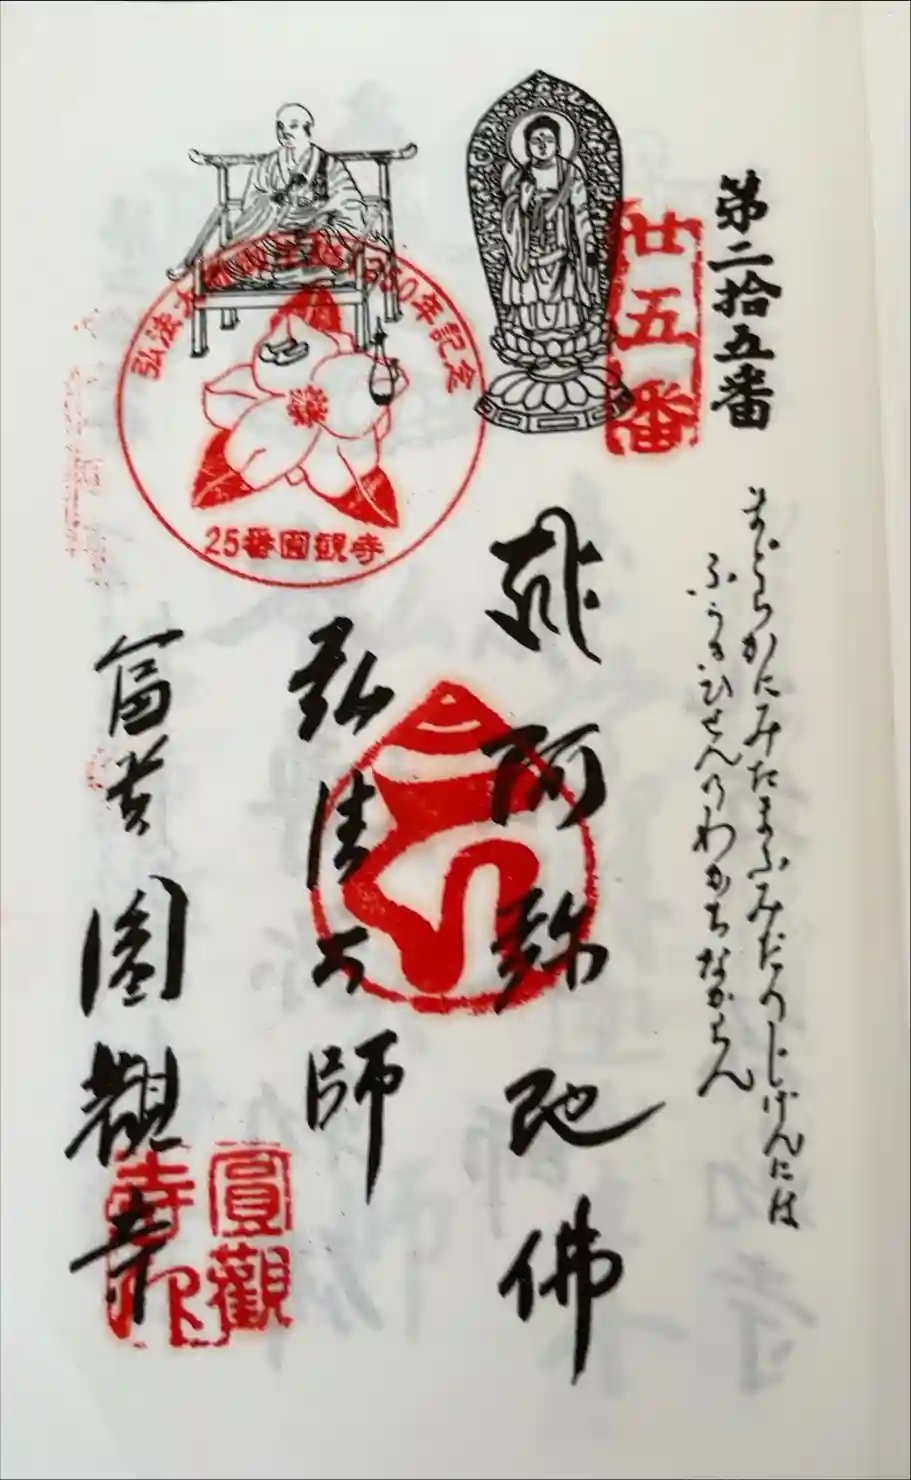 第二拾五番
廿五番
まどらかにみたまふみだのじげんには
ふうきひせんのわかちなからん
阿弥陀佛
弘法大師
弘法大師御生誕1250年記念
25番圓観寺
富貴圓観寺
圓觀寺印